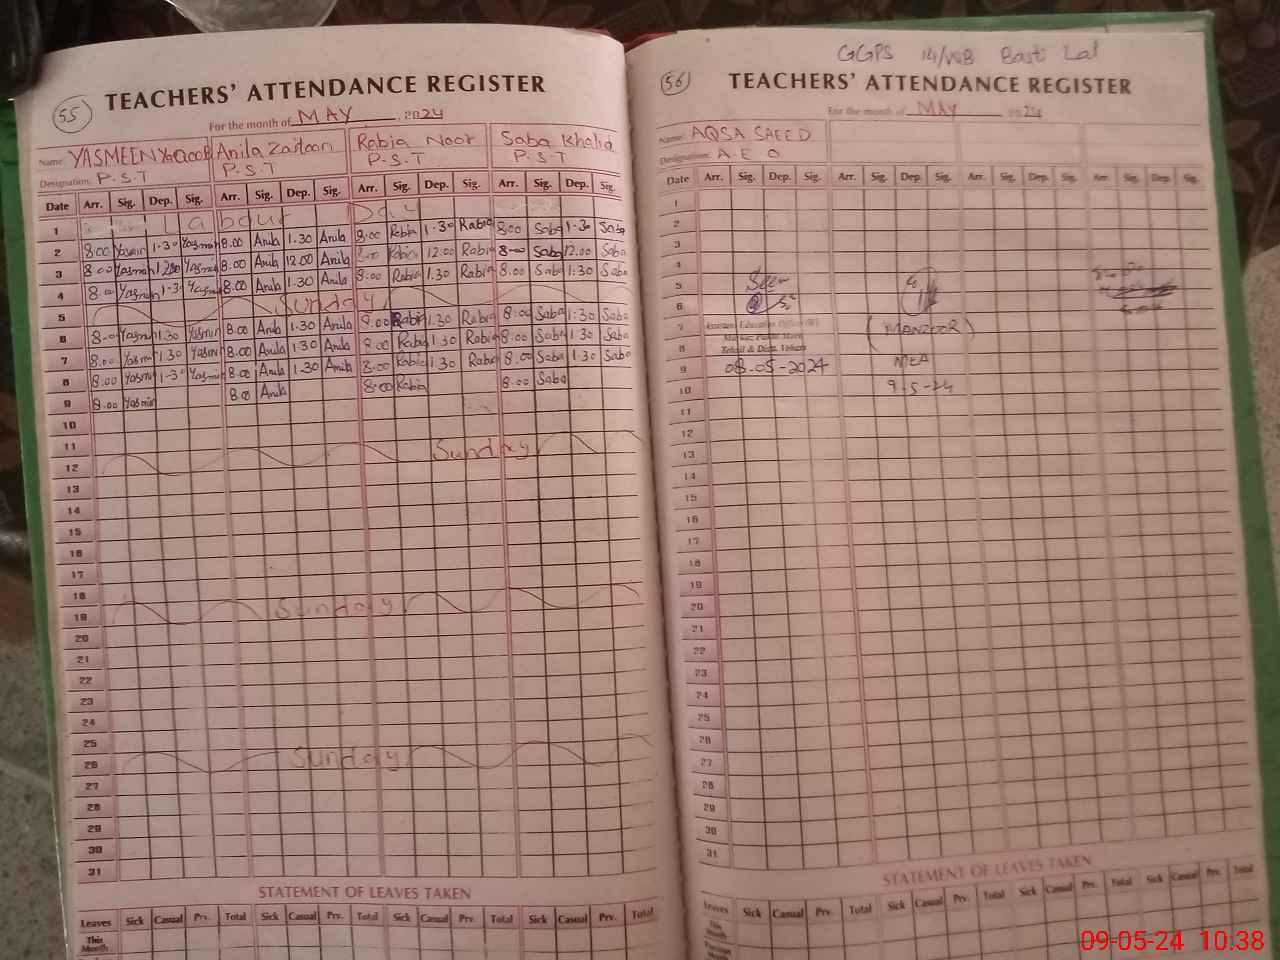 55
TEACHERS' ATTENDANCE REGISTER
For the month of MAY, 2024
Name: YASMEEN Yaqoob Anila Zaitoon Rabia Noor Saba Khalid
Designation: P.S.T P.S.T P.S.T P.S.T
Date Arr. Sig. Dep. Sig. Arr. Sig. Dep. Sig. Arr. Sig. Dep. Sig. Arr. Sig. Dep. Sig.
1 Labour Day
2 8.00 Yasmin 1.30 Yasmin 8.00 Anila 1.30 Anila 8.00 Rabia 1.30 Rabia 8.00 Saba 1.30 Saba
3 8.00 Yasmin 12.00 Yasmin 8.00 Anila 12.00 Anila 8.00 Rabia 12.00 Rabia 8.00 Saba 12.00 Saba
4 8.00 Yasmin 1.30 Yasmin 8.00 Anila 1.30 Anila 8.00 Rabia 1.30 Rabia 8.00 Saba 1:30 Saba
5 Sunday
6 8.00 Yasmin 1.30 Yasmin 8.00 Anila 1.30 Anila 8.00 Rabia 1.30 Rabia 8:00 Saba 1:30 Saba
7 8.00 Yasmin 1.30 Yasmin 8.00 Anila 1.30 Anila 8.00 Rabia 1.30 Rabia 8.00 Saba 1.30 Saba
8 8.00 Yasmin 1.30 Yasmin 8.00 Anila 1.30 Anila 8:00 Rabia 1.30 Rabia 8.00 Saba 1.30 Saba
9 8.00 Yasmin 8.00 Anila 8:00 Rabia 8.00 Saba
10
11
12 Sunday
13
14
15
16
17
18
19 Sunday
20
21
22
23
24
25
26 Sunday
27
28
29
30
31
STATEMENT OF LEAVES TAKEN
Leaves Sick Casual Prv. Total Sick Casual Prv. Total Sick Cas​ual Prv. Total Sick Casual Prv. Total
This
Month
GGPS 14/WB Basti Lal
56
TEACHERS' ATTENDANCE REGISTER
For the month of MAY 2024
Name: AQSA SAEED
Designation: A.E O
Date Arr. Sig. Dep. Sig. Arr. Sig. Dep. Sig. Arr. Sig. Dep. Sig. Arr. Sig. Dep. Sig.
1
2
3
4
5 Seen
6
7 Assistant Education Officer (W) (MANZOOR)
8 Tehsil & Distt. Vehari
9 08-05-2024 MEA
10 9-5-24
11
12
13
14
15
16
17
18
19
20
21
22
23
24
25
26
27
28
29
30
31
STATEMENT OF LEAVES TAKEN
Leaves Sick Casual Prv. Total Sick Casual Prv. Total Sick Casual Prv. Total Sick Casual Prv. Total
This
Month
09-05-24 10:38